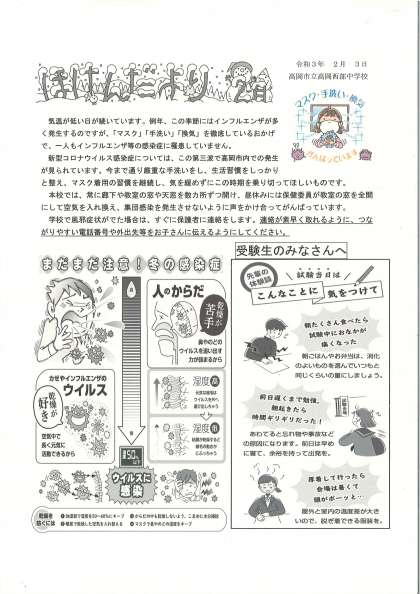 ほけんだより 2月
令和3年 2月 3日
高岡市立高岡西部中学校
マスク・手洗い・換気
がんばっています
気温が低い日が続いています。例年、この季節にはインフルエンザが多
く発生するのですが、「マスク」「手洗い」「換気」を徹底しているおかげ
で、一人もインフルエンザ等の感染症に罹患していません。
新型コロナウイルス感染症については、この第三波で高岡市内での発生
が見られています。今まで通り厳重な手洗いをし、生活習慣をしっかり
と整え、マスク着用の習慣を継続し、気を緩めずにこの時期を乗り切ってほしいものです。
本校では、常に廊下や教室の窓や天窓を数カ所ずつ開け、昼休みには保健委員が教室の窓を全開
にして空気を入れ換え、集団感染を発生させないように声をかけ合ってがんばっています。
学校で風邪症状がでた場合は、すぐに保護者に連絡をします。連絡が素早く取れるように、つな
がりやすい電話番号や外出先等をお子さんに伝えるようにしてください。
まだまだ注意!冬の感染症
人のからだ
乾燥が
苦手
鼻やのどの
ウイルスを追い出す
力が弱まるから
かぜやインフルエンザの
ウイルス
乾燥が
好き
空気中で
長く元気に
活動できるから
湿度 高
湿度 低
ウイルスに
感染
乾燥を
防ぐには
受験生のみなさんへ
先輩の
体験談
試験当日は
こんなことに 気をつけて
朝たくさん食べたら
試験中におなかが
痛くなった
朝ごはんやお弁当は、消化
のよいものを選んでいつもと
同じくらいの量にしましょう。
前日遅くまで勉強。
朝起きたら
時間ギリギリだった!
あわてると忘れ物や事故など
の原因になります。前日は早め
に寝て、余裕を持って出発を。
試験会場
厚着して行ったら
会場は暑くて
頭がボーッと…
屋外と室内の温度差が大き
いので、脱ぎ着できる服装を。